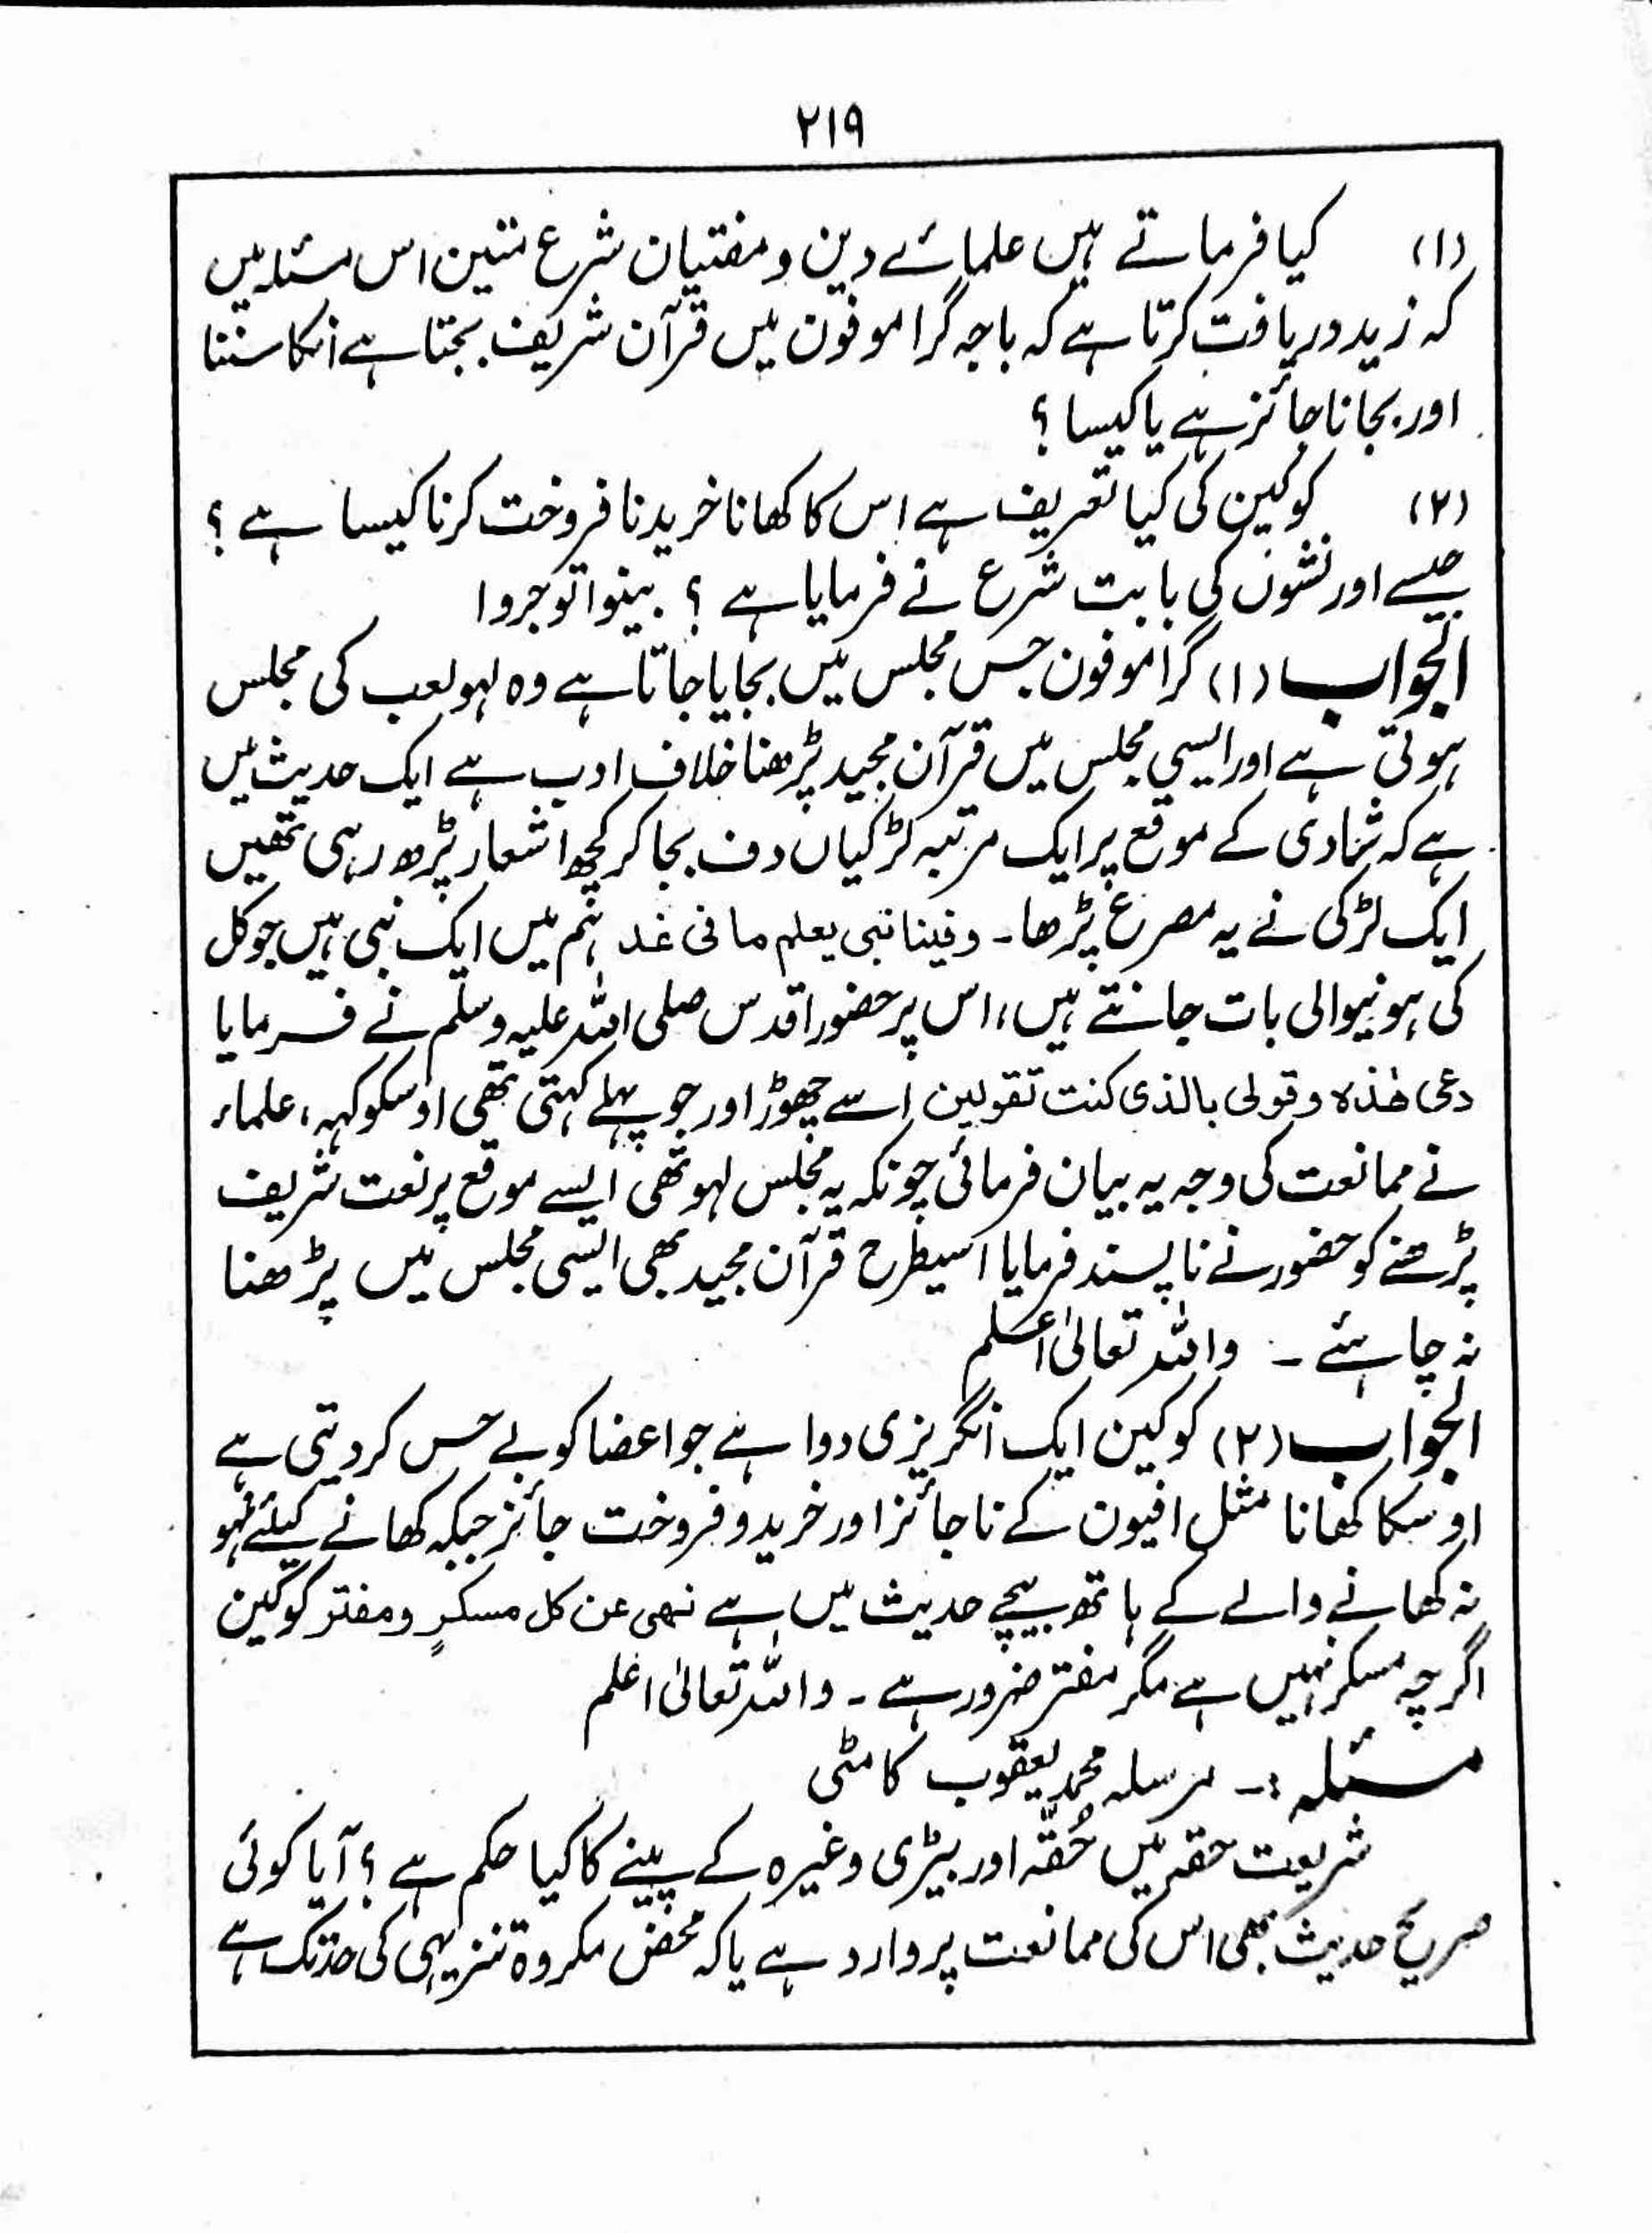 ۲۱۹
(۱) کیا فرماتے ہیں علمائے دین و مفتیان شرع متین اس مسئلہ میں
کہ زید دریافت کرتا ہے کہ باجہ گراموفون میں قرآن شریف بجتا ہے انکا سننا
اور بجانا جائز ہے یا کیسا ؟
(۲) کوکین کی کیا تعریف ہے اس کا کھانا خریدنا فروخت کرنا کیسا ہے ؟
جیسے اور نشوں کی بابت شرع نے فرمایا ہے ؟ بینوا توجروا
الجواب (۱) گراموفون جس مجلس میں بجایا جاتا ہے وہ لہو لعب کی مجلس
ہوتی ہے اور ایسی مجلس میں قرآن مجید پڑھنا خلاف ادب ہے ایک حدیث میں
ہے کہ شادی کے موقع پر ایک مرتبہ لڑکیاں دف بجا کر کچھ اشعار پڑھ رہی تھیں
ایک لڑکی نے یہ مصرع پڑھا۔ وفینا نبی یعلم ما فی غد ہم میں ایک نبی ہیں جو کل
کی ہونیوالی بات جانتے ہیں، اس پر حضور اقدس صلی اللہ علیہ وسلم نے فرمایا
دعی ھٰذہ وقولی بالذی کنت تقولین اسے چھوڑ اور جو پہلے کہتی تھی اوسکو کہہ، علماء
نے ممانعت کی وجہ یہ بیان فرمائی چونکہ یہ مجلس لہو تھی ایسے موقع پر نعت شریف
پڑھنے کو حضور نے ناپسند فرمایا اسیطرح قرآن مجید بھی ایسی مجلس میں پڑھنا
نہ چاہئے ۔ واللہ تعالیٰ اعلم
الجواب (۲) کوکین ایک انگریزی دوا ہے جو اعضا کو بے حس کر دیتی ہے
اوسکا کھانا مثل افیون کے ناجائز اور خرید و فروخت جائز جبکہ کھانے کیلئے نہو
نہ کھانے والے کے ہاتھ بیچے حدیث میں ہے نہی عن کل مسکرٍ ومفتر کوکین
اگرچہ مسکر نہیں ہے مگر مفتر ضرور ہے ۔ واللہ تعالیٰ اعلم
مسئلہ :۔ مرسلہ محمد یعقوب کامٹی
شریعت حقہ میں حُقّہ اور بیڑی وغیرہ کے پینے کا کیا حکم ہے ؟ آیا کوئی
صریح حدیث بھی اس کی ممانعت پر وارد ہے یا کہ محض مکروہ تنزیہی کی حد تک ہے